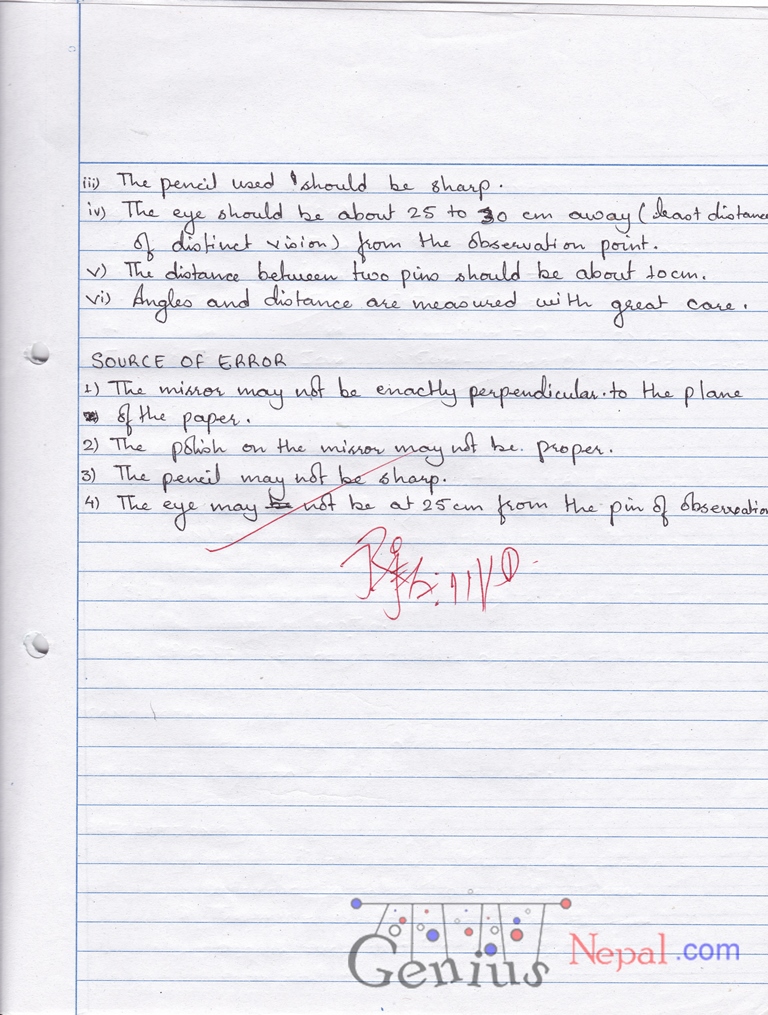 iii) The pencil used should be sharp.
iv) The eye should be about 25 to 30 cm away (least distance
of distinct vision) from the observation point.
v) The distance between two pins should be about 10cm.
vi) Angles and distance are measured with great care.
SOURCE OF ERROR
1) The mirror may not be enactly perpendicular to the plane
of the paper.
2) The polish on the mirror may not be proper.
3) The pencil may not be sharp.
4) The eye may not be at 25cm from the pin of observation
Genius Nepal.com